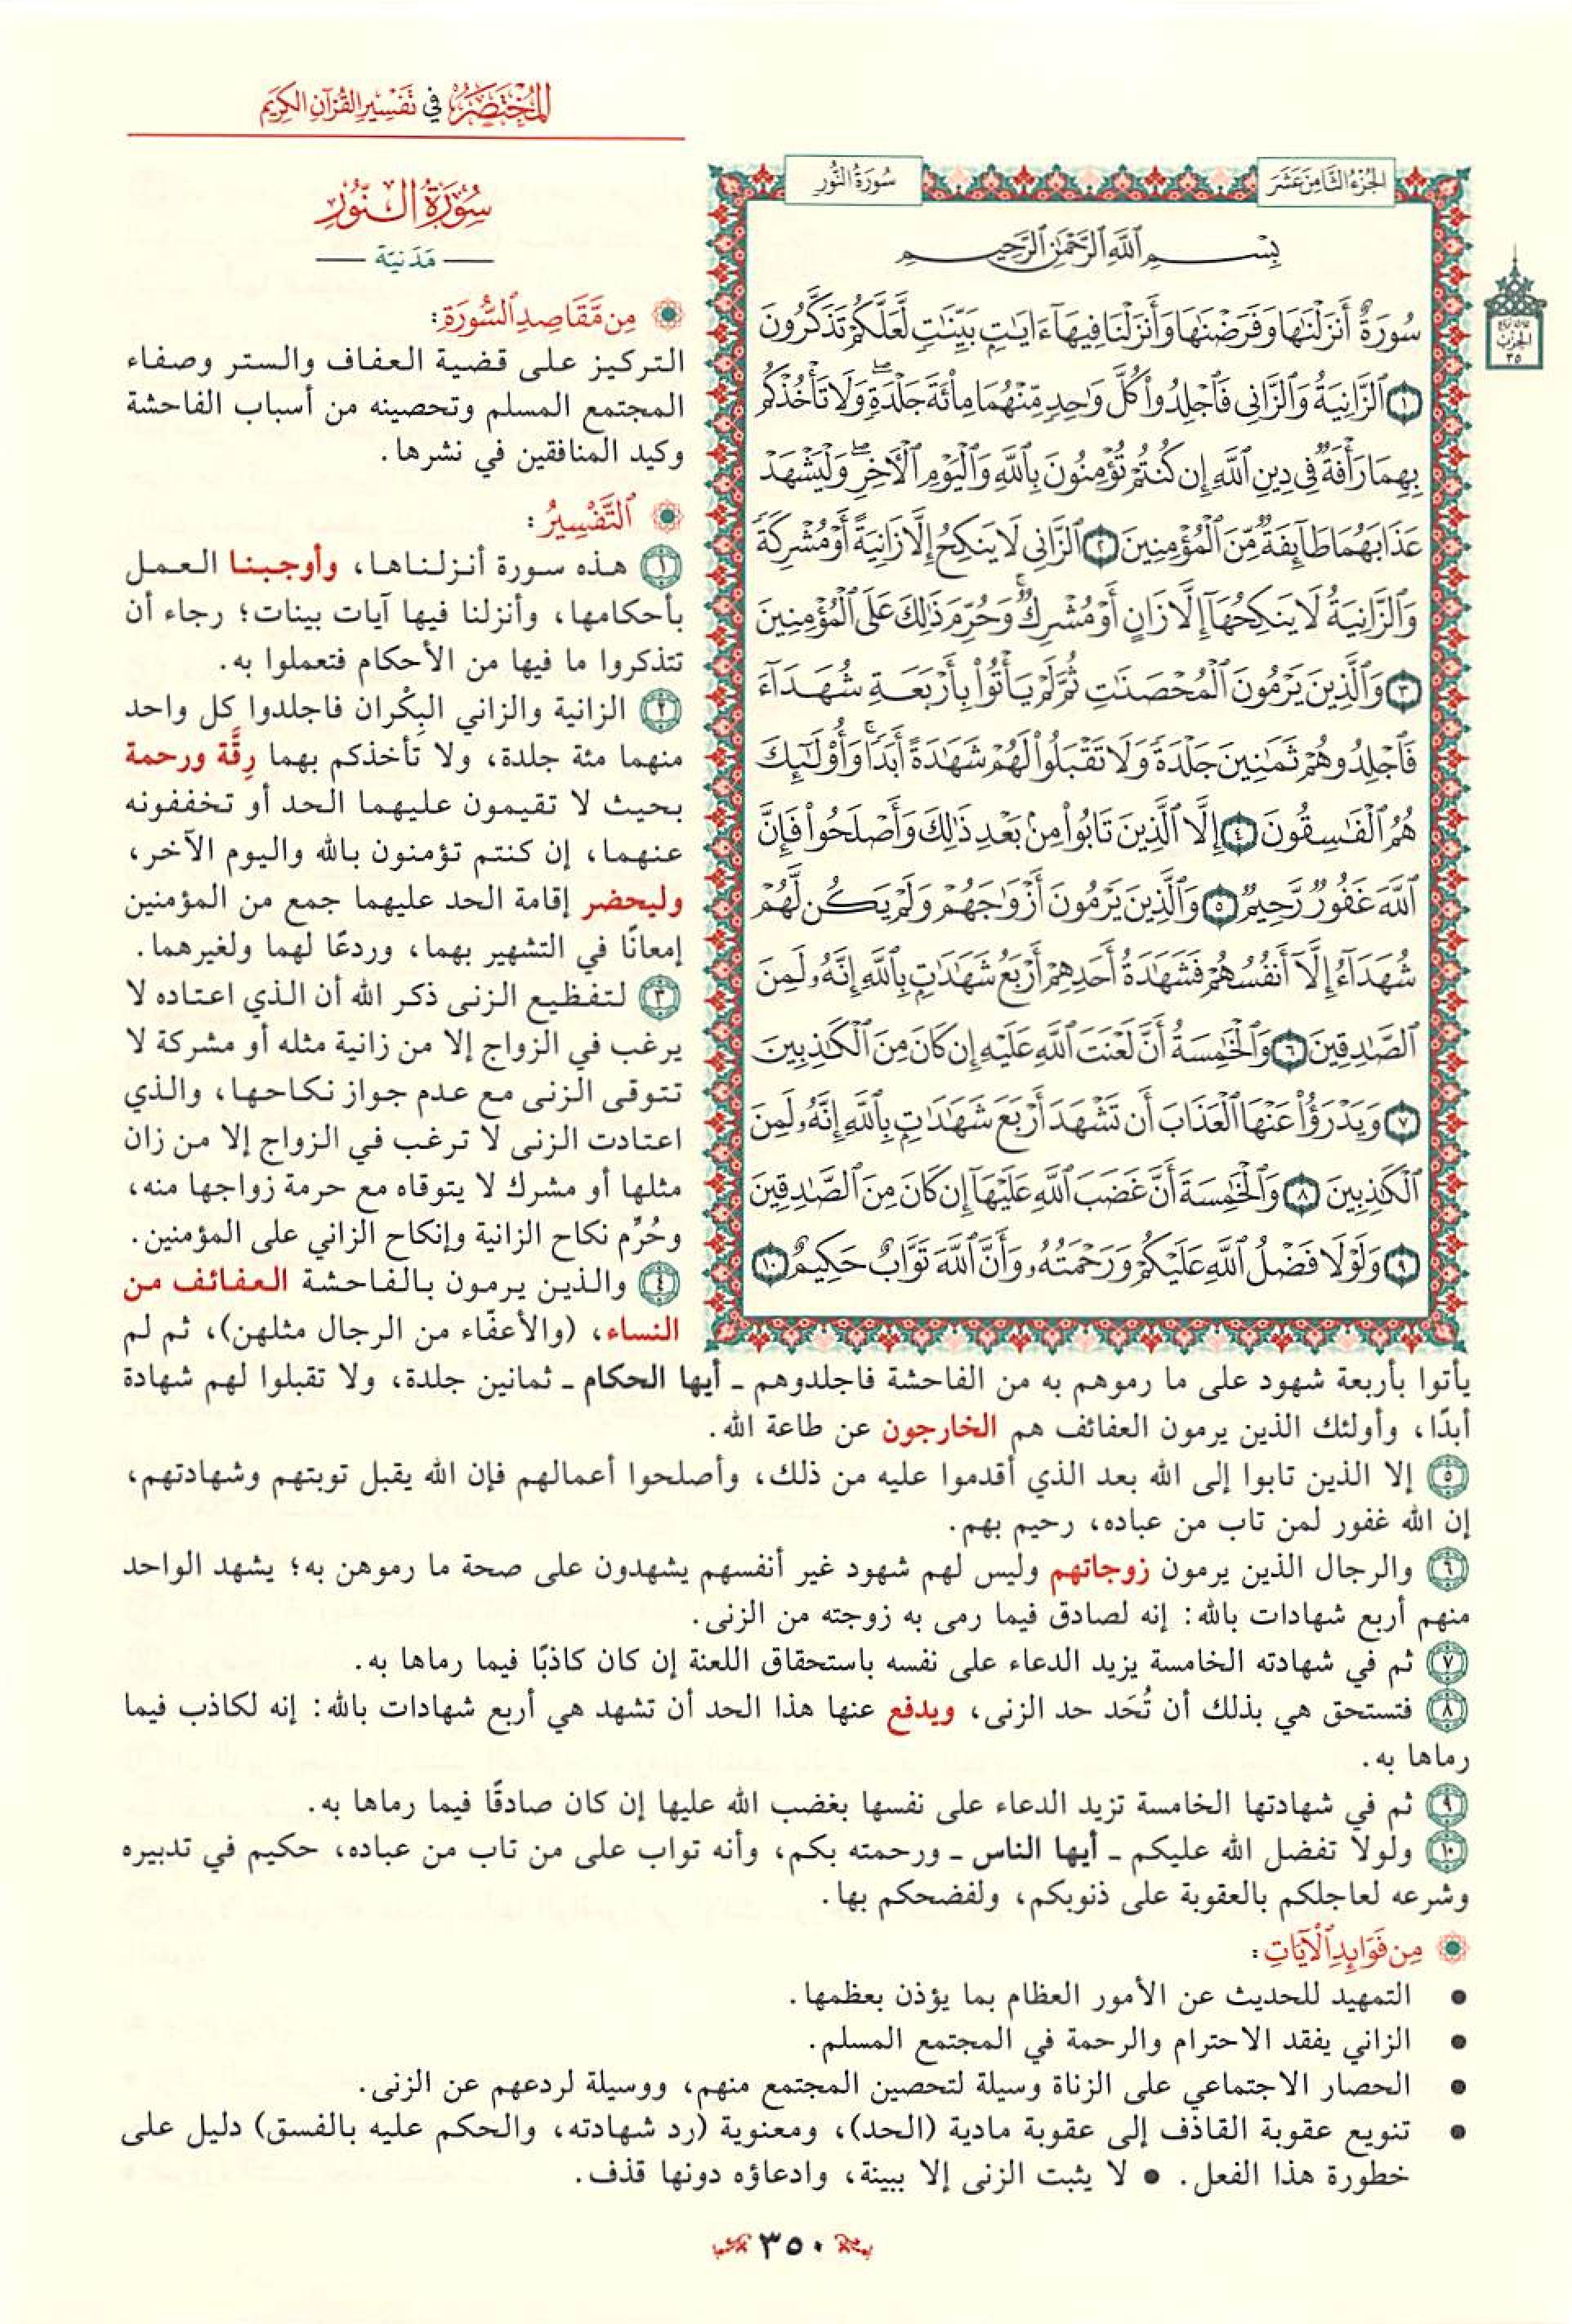 المختصر في تفسير القرآن الكريم
الجزء الثامن عشر
سورة النور
بِسْمِ ٱللَّهِ ٱلرَّحْمَٰنِ ٱلرَّحِيمِ
سُورَةٌ أَنزَلْنَٰهَا وَفَرَضْنَٰهَا وَأَنزَلْنَا فِيهَآ ءَايَٰتٍۭ بَيِّنَٰتٍ لَّعَلَّكُمْ تَذَكَّرُونَ
١ ٱلزَّانِيَةُ وَٱلزَّانِى فَٱجْلِدُوا۟ كُلَّ وَٰحِدٍ مِّنْهُمَا مِا۟ئَةَ جَلْدَةٍۖ وَلَا تَأْخُذْكُم
بِهِمَا رَأْفَةٌ فِى دِينِ ٱللَّهِ إِن كُنتُمْ تُؤْمِنُونَ بِٱللَّهِ وَٱلْيَوْمِ ٱلْـَٔاخِرِۖ وَلْيَشْهَدْ
عَذَابَهُمَا طَآئِفَةٌ مِّنَ ٱلْمُؤْمِنِينَ ٢ ٱلزَّانِى لَا يَنكِحُ إِلَّا زَانِيَةً أَوْ مُشْرِكَةً
وَٱلزَّانِيَةُ لَا يَنكِحُهَآ إِلَّا زَانٍ أَوْ مُشْرِكٌۚ وَحُرِّمَ ذَٰلِكَ عَلَى ٱلْمُؤْمِنِينَ
٣ وَٱلَّذِينَ يَرْمُونَ ٱلْمُحْصَنَٰتِ ثُمَّ لَمْ يَأْتُوا۟ بِأَرْبَعَةِ شُهَدَآءَ
فَٱجْلِدُوهُمْ ثَمَٰنِينَ جَلْدَةً وَلَا تَقْبَلُوا۟ لَهُمْ شَهَٰدَةً أَبَدًاۚ وَأُو۟لَٰٓئِكَ
هُمُ ٱلْفَٰسِقُونَ ٤ إِلَّا ٱلَّذِينَ تَابُوا۟ مِنۢ بَعْدِ ذَٰلِكَ وَأَصْلَحُوا۟ فَإِنَّ
ٱللَّهَ غَفُورٌ رَّحِيمٌ ٥ وَٱلَّذِينَ يَرْمُونَ أَزْوَٰجَهُمْ وَلَمْ يَكُن لَّهُمْ
شُهَدَآءُ إِلَّآ أَنفُسُهُمْ فَشَهَٰدَةُ أَحَدِهِمْ أَرْبَعُ شَهَٰدَٰتٍۭ بِٱللَّهِ إِنَّهُۥ لَمِنَ
ٱلصَّٰدِقِينَ ٦ وَٱلْخَٰمِسَةُ أَنَّ لَعْنَتَ ٱللَّهِ عَلَيْهِ إِن كَانَ مِنَ ٱلْكَٰذِبِينَ
٧ وَيَدْرَؤُا۟ عَنْهَا ٱلْعَذَابَ أَن تَشْهَدَ أَرْبَعَ شَهَٰدَٰتٍۭ بِٱللَّهِ إِنَّهُۥ لَمِنَ
ٱلْكَٰذِبِينَ ٨ وَٱلْخَٰمِسَةَ أَنَّ غَضَبَ ٱللَّهِ عَلَيْهَآ إِن كَانَ مِنَ ٱلصَّٰدِقِينَ
٩ وَلَوْلَا فَضْلُ ٱللَّهِ عَلَيْكُمْ وَرَحْمَتُهُۥ وَأَنَّ ٱللَّهَ تَوَّابٌ حَكِيمٌ ١٠
الحزب
٣٥
سورة النور
مدنية
من مقاصد السورة:
التركيز على قضية العفاف والستر وصفاء
المجتمع المسلم وتحصينه من أسباب الفاحشة
وكيد المنافقين في نشرها.
التفسير:
١ هذه سورة أنزلناها، وأوجبنا العمل
بأحكامها، وأنزلنا فيها آيات بينات؛ رجاء أن
تتذكروا ما فيها من الأحكام فتعملوا به.
٢ الزانية والزاني البِكْران فاجلدوا كل واحد
منهما مئة جلدة، ولا تأخذكم بهما رِقَّة ورحمة
بحيث لا تقيمون عليهما الحد أو تخففونه
عنهما، إن كنتم تؤمنون بالله واليوم الآخر،
وليحضر إقامة الحد عليهما جمع من المؤمنين
إمعانًا في التشهير بهما، وردعًا لهما ولغيرهما.
٣ لتفظيع الزنى ذكر الله أن الذي اعتاده لا
يرغب في الزواج إلا من زانية مثله أو مشركة لا
تتوقى الزنى مع عدم جواز نكاحها، والذي
اعتادت الزنى لا ترغب في الزواج إلا من زان
مثلها أو مشرك لا يتوقاه مع حرمة زواجها منه،
وحُرِّم نكاح الزانية وإنكاح الزاني على المؤمنين.
٤ والذين يرمون بالفاحشة العفائف من
النساء، (والأعفّاء من الرجال مثلهن)، ثم لم
يأتوا بأربعة شهود على ما رموهم به من الفاحشة فاجلدوهم ـ أيها الحكام ـ ثمانين جلدة، ولا تقبلوا لهم شهادة
أبدًا، وأولئك الذين يرمون العفائف هم الخارجون عن طاعة الله.
٥ إلا الذين تابوا إلى الله بعد الذي أقدموا عليه من ذلك، وأصلحوا أعمالهم فإن الله يقبل توبتهم وشهادتهم،
إن الله غفور لمن تاب من عباده، رحيم بهم.
٦ والرجال الذين يرمون زوجاتهم وليس لهم شهود غير أنفسهم يشهدون على صحة ما رموهن به؛ يشهد الواحد
منهم أربع شهادات بالله: إنه لصادق فيما رمى به زوجته من الزنى.
٧ ثم في شهادته الخامسة يزيد الدعاء على نفسه باستحقاق اللعنة إن كان كاذبًا فيما رماها به.
٨ فتستحق هي بذلك أن تُحَد حد الزنى، ويدفع عنها هذا الحد أن تشهد هي أربع شهادات بالله: إنه لكاذب فيما
رماها به.
٩ ثم في شهادتها الخامسة تزيد الدعاء على نفسها بغضب الله عليها إن كان صادقًا فيما رماها به.
١٠ ولولا تفضل الله عليكم ـ أيها الناس ـ ورحمته بكم، وأنه تواب على من تاب من عباده، حكيم في تدبيره
وشرعه لعاجلكم بالعقوبة على ذنوبكم، ولفضحكم بها.
من فوائد الآيات:
• التمهيد للحديث عن الأمور العظام بما يؤذن بعظمها.
• الزاني يفقد الاحترام والرحمة في المجتمع المسلم.
• الحصار الاجتماعي على الزناة وسيلة لتحصين المجتمع منهم، ووسيلة لردعهم عن الزنى.
• تنويع عقوبة القاذف إلى عقوبة مادية (الحد)، ومعنوية (رد شهادته، والحكم عليه بالفسق) دليل على
خطورة هذا الفعل. • لا يثبت الزنى إلا ببينة، وادعاؤه دونها قذف.
٣٥٠